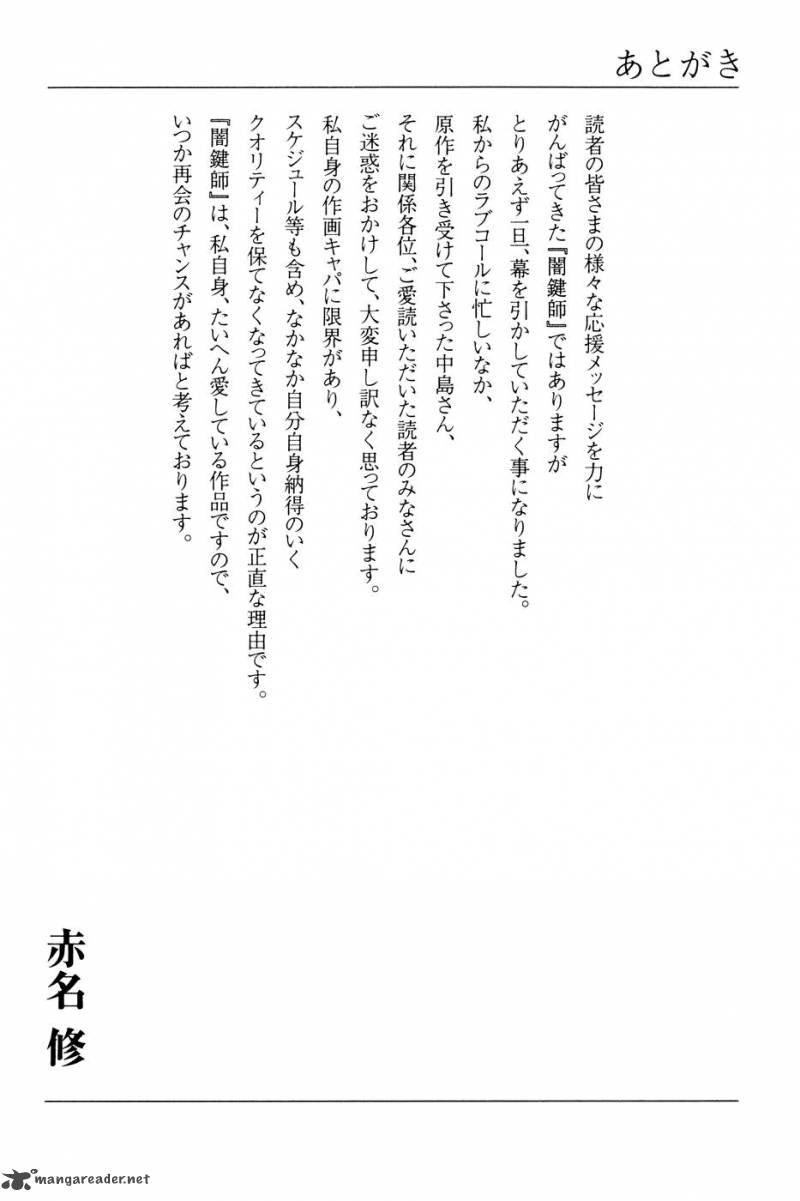 あとがき
読者の皆さまの様々な応援メッセージを力に
がんばってきた『闇鍵師』ではありますが
とりあえず一旦、幕を引かしていただく事になりました。
私からのラブコールに忙しいなか、
原作を引き受けて下さった中島さん、
それに関係各位、ご愛読いただいた読者のみなさんに
ご迷惑をおかけして、大変申し訳なく思っております。
私自身の作画キャパに限界があり、
スケジュール等も含め、なかなか自分自身納得のいく
クオリティーを保てなくなってきているというのが正直な理由です。
『闇鍵師』は、私自身、たいへん愛している作品ですので、
いつか再会のチャンスがあればと考えております。
赤名 修
mangareader.net